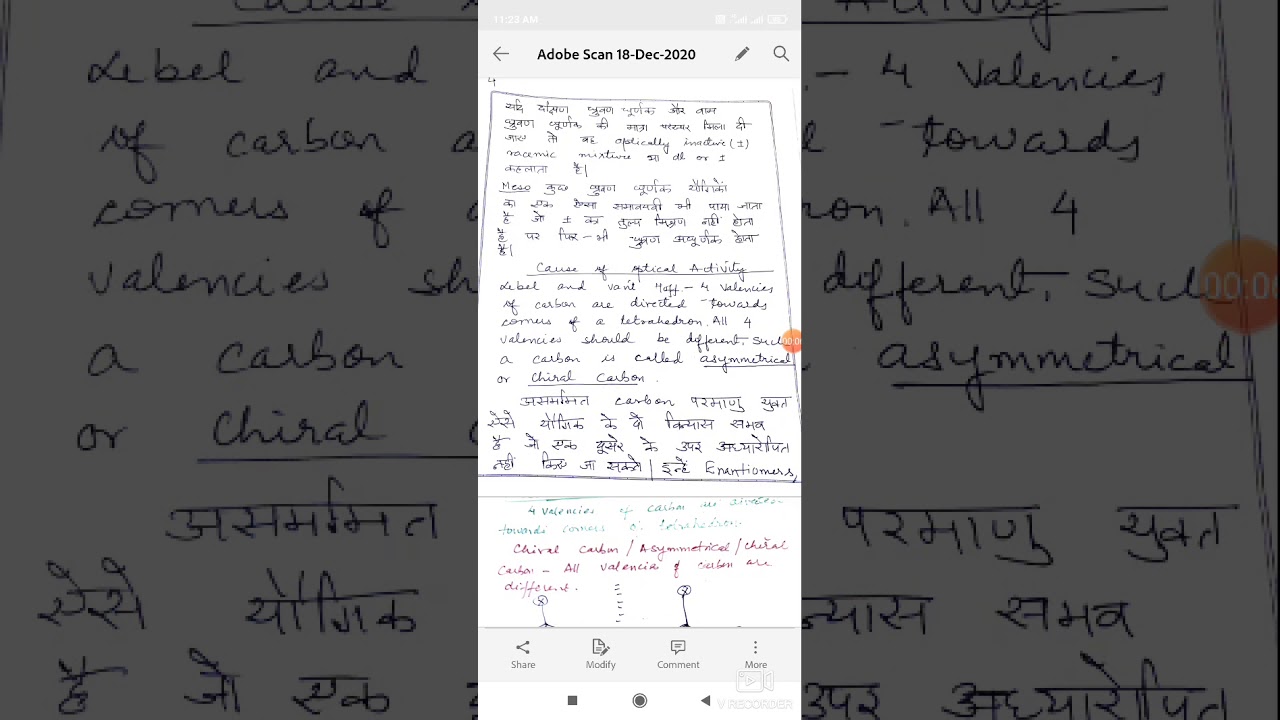 11:23 AM
Adobe Scan 18-Dec-2020
4
यदि दक्षिण ध्रुवण घूर्णक और वाम
ध्रुवण घूर्णक की मात्रा परस्पर मिला दी
जाए तो वह optically inactive (±)
racemic mixture या dl or ±
कहलाता है|
Meso कुछ ध्रुवण घूर्णक यौगिकों
का एक ऐसा समावयवी भी पाया जाता
है जो ± का तुल्य मिश्रण नहीं होता
है पर फिर-भी ध्रुवण अघूर्णक होता
है|
Cause of optical Activity
Lebel and vant Hoff - 4 valencies
of carbon are directed towards
corners of a tetrahedron. All 4
valencies should be different. Such
a carbon is called asymmetrical
or Chiral Carbon.
असममित carbon परमाणु युक्त
ऐसे यौगिक के दो विन्यास सभव
है जो एक दूसरे के उपर अध्यारोपित
नहीं किए जा सकते | इन्हें Enantiomers,
4 valencies of carbon are
towards corners of tetrahedron.
Chiral Carbon / Asymmetrical / chiral
Carbon - All valencies of carbon are
different.
Share Modify Comment More
V RECORDER